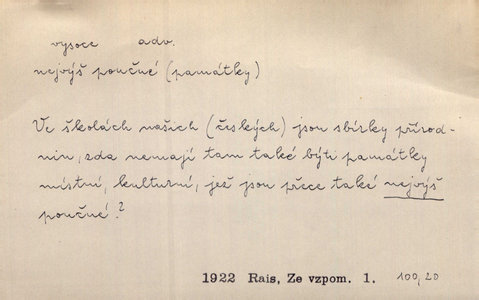 vysoce adv.
nejvýš poučné (památky)
Ve školách našich (českých) jsou sbírky přírod-
nin, zda nemají tam také býti památky
místní, kulturní, jež jsou přece také nejvýš
poučné?
1922 Rais, Ze vzpom. 1. 100,20